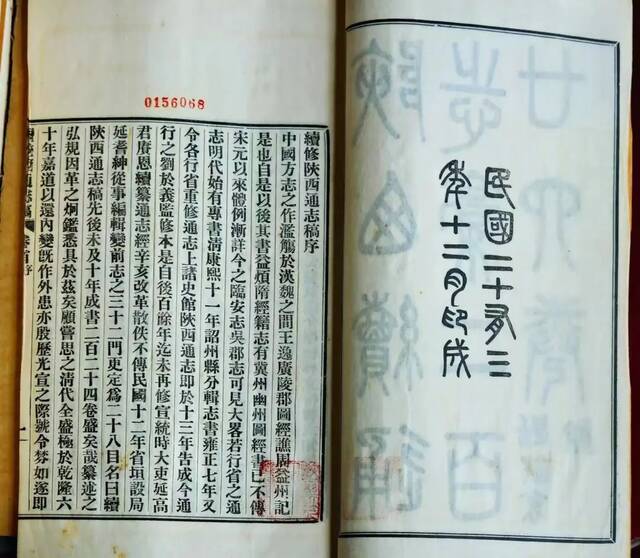 民國二十有三
年十二月印成
0156068
續修陝西通志稿序
中國方志之作濫觴於漢魏之間王逸廣陵郡圖經譙周益州記
是也自是以後其書益煩隋經籍志有冀州幽州圖經書已不傳
宋元以來體例漸詳今之臨安志吳郡志可見大畧若行省之通
志明代始有專書清康熙十一年詔州縣分輯志書雍正七年又
令各行省重修通志上諸史館陝西通志即於十三年告成今通
行之劉於義監修本是自後百餘年迄未再修宣統時大吏延高
君賡恩續纂通志經辛亥改革散佚不傳民國十二年省垣設局
延耆紳從事編輯變前志之三十二門更定爲二十八目名曰續
陝西通志稿先後未及十年成書二百二十四卷盛矣哉纂述之
弘規因革之炯鑑悉具於茲矣顧嘗思之清代全盛極於乾隆六
十年嘉道以還內變旣作外患亦殷歷光宣之際號令棼如遂即
通志稿 卷首序 一